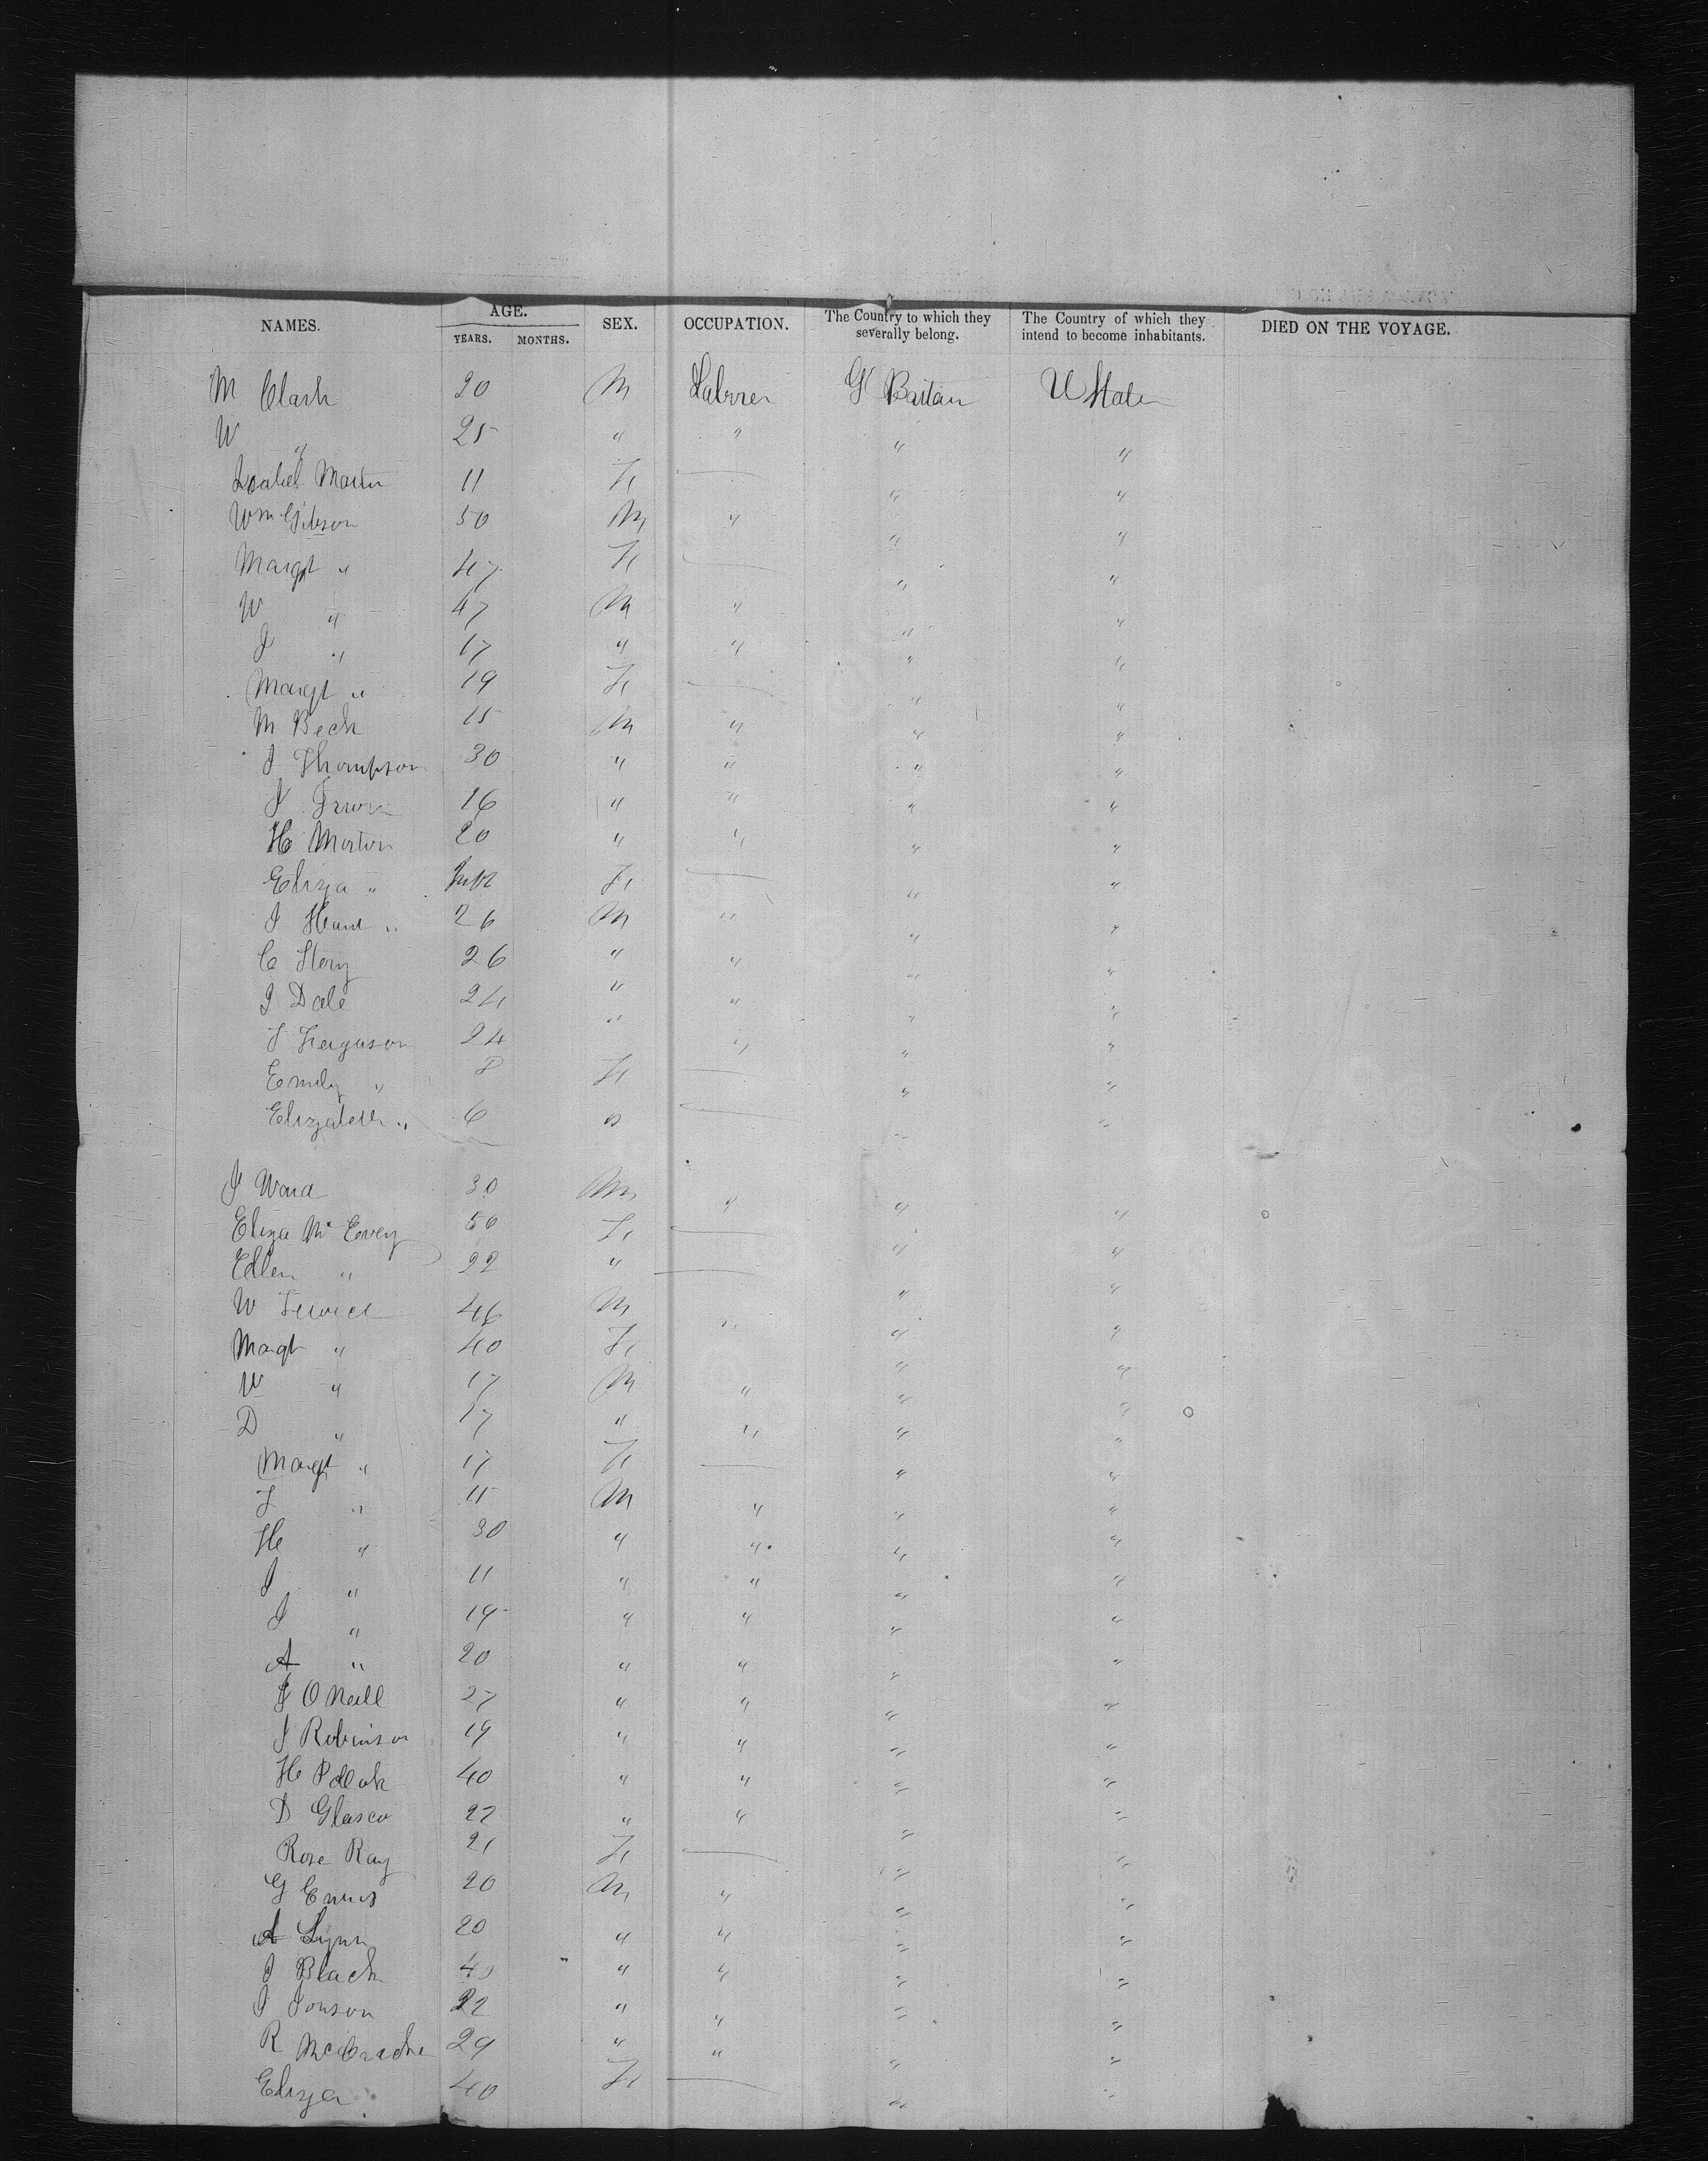 NAMES. AGE. YEARS. MONTHS. SEX. OCCUPATION. The Country to which they severally belong. The Country of which they intend to become inhabitants. DIED ON THE VOYAGE.
M Clark 20 M Labrer Gt Britain U States
W " 25 " " " "
Isabel Martin 11 Fe — " "
Wm Gibson 50 M " " "
Margt " 47 Fe — " "
W " 47 M " " "
J " 17 " " " "
Margt " 19 Fe — " "
M Beck 15 M " " "
J Thompson 30 " " " "
J Irwin 16 " " " "
H Morton 20 " " " "
Eliza " Inft Fe — " "
J " 26 M " " "
C Story 26 " " " "
J Dale 24 " " " "
J Ferguson 24 " " " "
Emily " 8 Fe — " "
Elizabeth " 6 " — " "
J Ward 30 M " " "
Eliza Mc Evey 50 Fe — " "
Ellen " 22 " — " "
W 46 M " " "
Margt " 40 Fe " "
W " 17 M " " "
D " 17 " " " "
Margt " 17 Fe — " "
J " 15 M " " "
H " 30 " " " "
J " 11 " " " "
J " 19 " " " "
A " 20 " " " "
J O Neill 27 " " " "
J Robinson 19 " " " "
H Pollok 40 " " " "
D Glasco 22 " " " "
Rose Ray 21 Fe — " "
G Ennis 20 M " " "
A Lynn 20 " " " "
J Black 40 " " " "
J Jonson 22 " " " "
R McCracke 29 " " " "
Eliza 40 Fe — " "